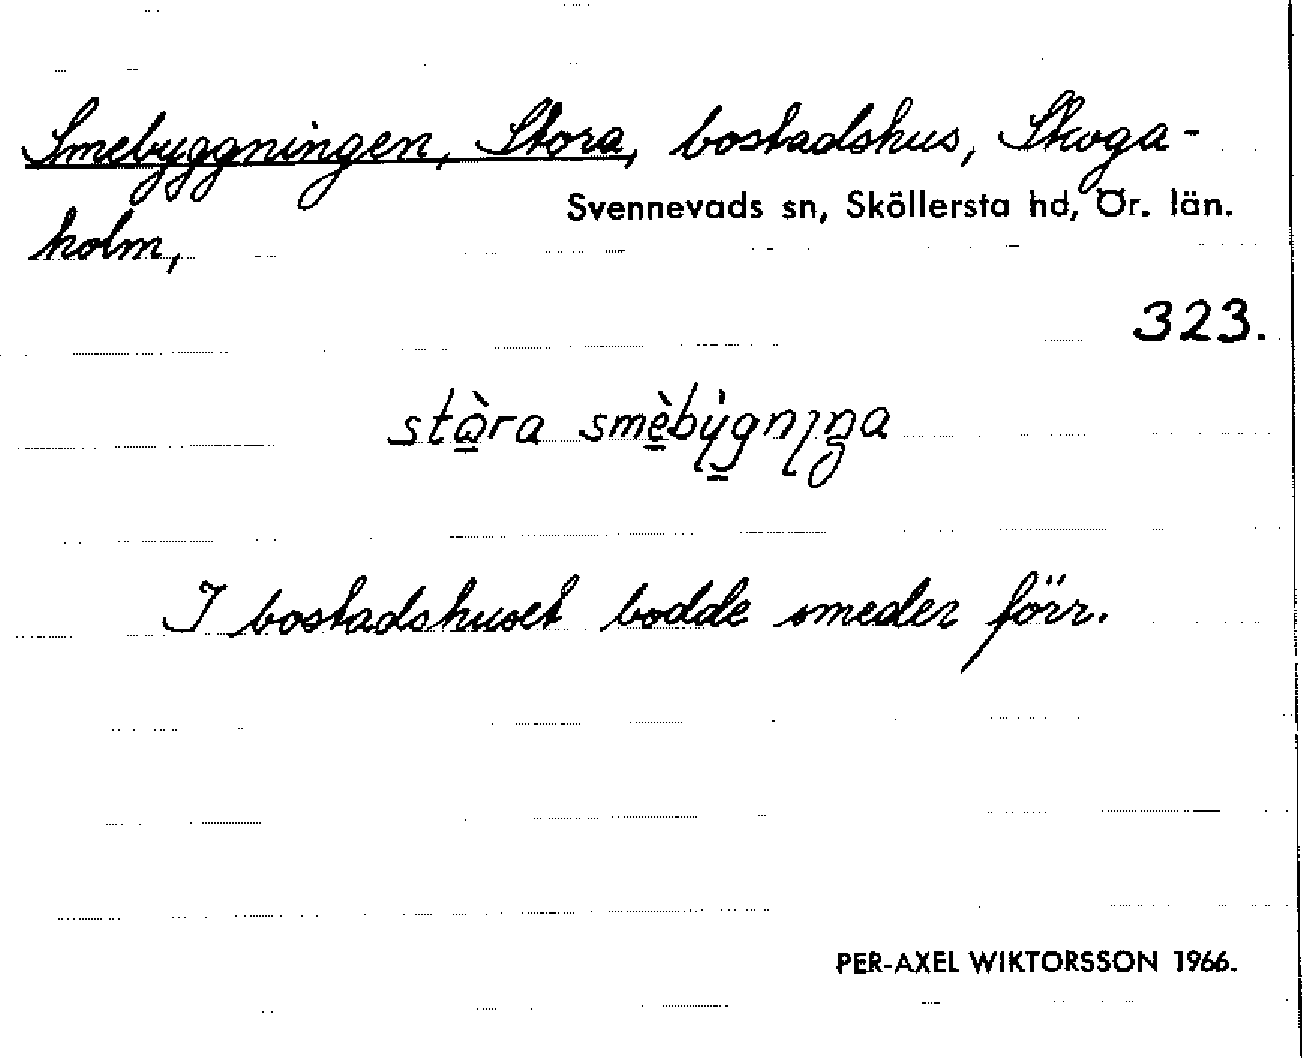 Smebyggningen, Stora, bostadshus, Skoga-
Svennevads sn, Sköllersta hd, Ör. län.
holm,
323.
stàra smèbẏgnıŋa
I bostadshuset bodde smeder förr.
PER-AXEL WIKTORSSON 1966.